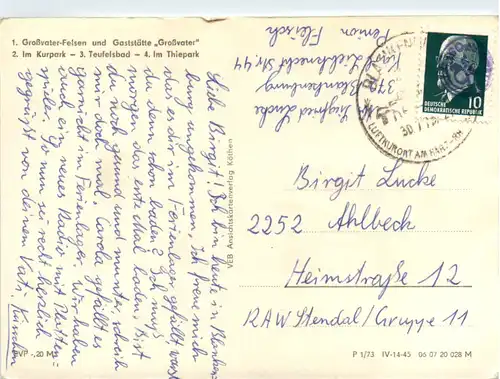 1. Großvater-Felsen und Gaststätte „Großvater"
2. Im Kurpark – 3. Teufelsbad – 4. Im Thiepark
Siegfried Lucke
Blankenburg
Karl Liebknecht Str. 44
Pension Fleisch
BLANKENBURG
LUFTKURORT AM HARZ
10
DEUTSCHE
DEMOKRATISCHE REPUBLIK
Liebe Birgit! Ich bin heute in Blanken-
burg angekommen. Ich freue mich
daß es dir im Ferienlager gefällt warst
du denn schon baden? Ich muß
morgen das erste mal baden. Bist
du noch gesund und munter, schreib
mir doch mal. Carola gefällt es
garnicht im Ferienlager. Wir haben
auch ein neues Radio mit
spieler. So nun sei recht herzlich
gegrüßt von deinen Vati
VEB Ansichtskartenverlag Köthen
Birgit Lucke
2252 Ahlbeck
Heimstraße 12
RAW Stendal/Gruppe 11
BVP -,20 M
P 1/73 IV-14-45 06 07 20 028 M